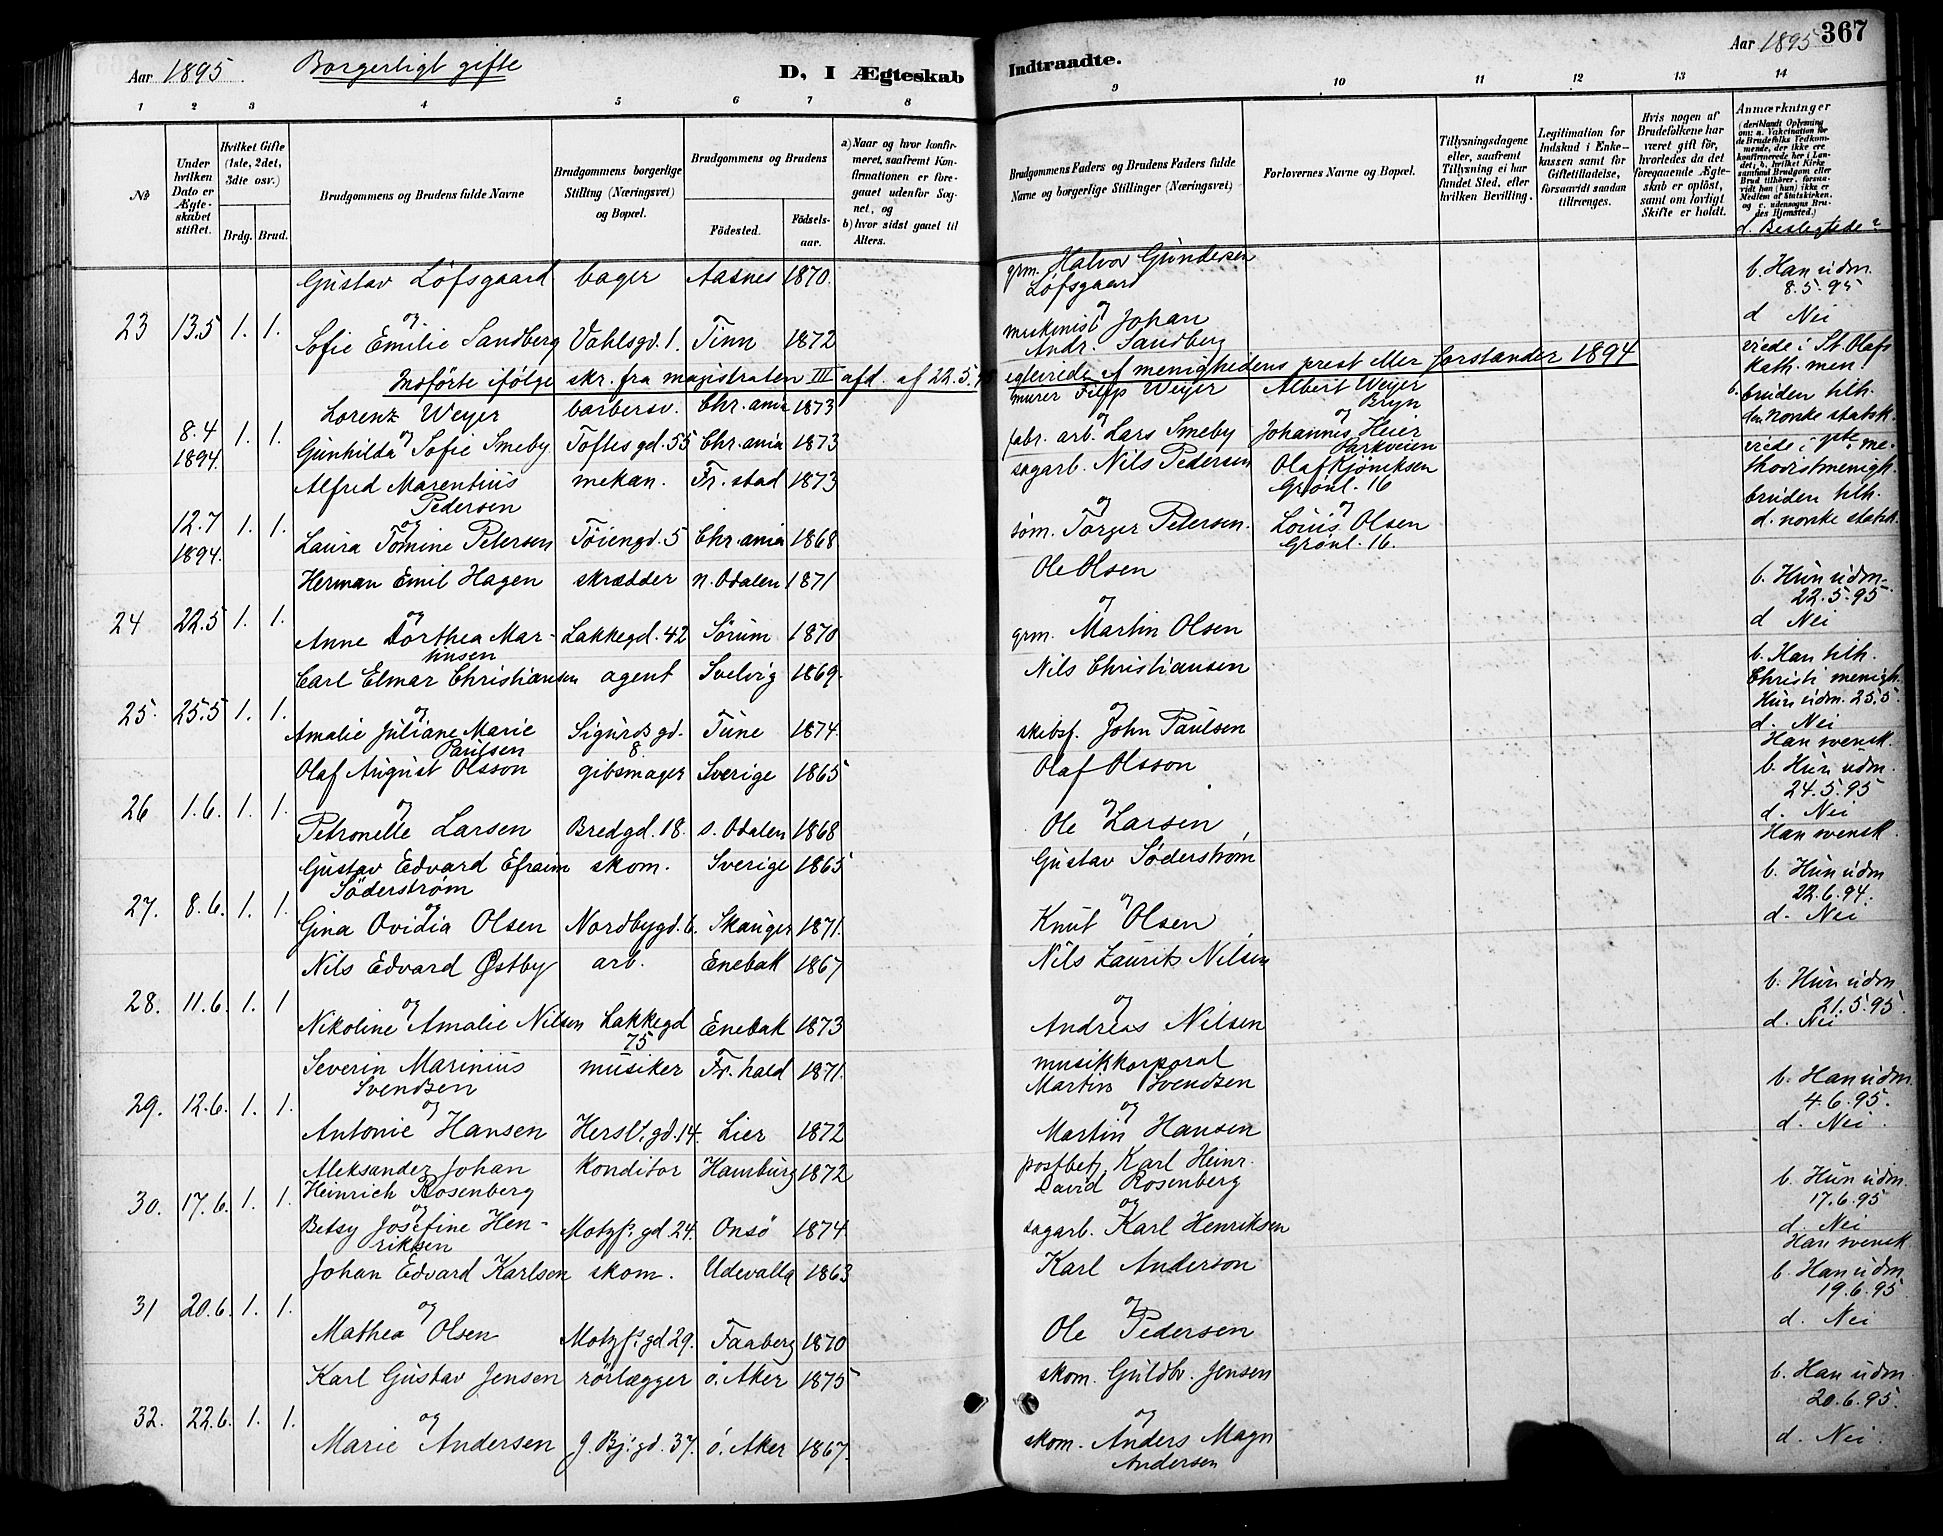 Aar 1895. Borgerligt gifte D, I Ægteskab
Indtraadte. Aar 1895 367
1 2 3 4 5 6 7 8
9 10 11 12 13 14
No
Under hvilken Dato er Ægteskabet stiftet.
Hvilket Gifte (1ste, 2det, 3die osv.)
Brdg. Brud.
Brudgommens og Brudens fulde Navne
Brudgommens borgerlige Stilling (Næringsvei) og Bopæl.
Brudgommens og Brudens
Födested. Födselsaar.
a) Naar og hvor konfirmeret, saafremt Konfirmationen er foregaaet udenfor Sognet, og
b) hvor sidst gaaet til Alters.
Brudgommens Faders og Brudens Faders fulde Navne og borgerlige Stillinger (Næringsvei)
Forlovernes Navne og Bopæl.
Tillysningsdagene eller, saafremt Tillysning ei har fundet Sted, efter hvilken Bevilling.
Legitimation for Indskud i Enkekassen samt for Giftetilladelse, forsaavidt saadan tiltrænges.
Hvis nogen af Brudefolkene har været gift för, hvorledes da det foregaaende Ægteskab er oplöst, samt om lovligt Skifte er holdt.
Anmærkninger
(deriblandt Oplysning om: a. Vakcination for de Brudefolks Vedkommende, der ikke ere konfirmerede her i Landet; b. hvilket Kirkesamfund Brudgom eller Brud tilhörer, forsaavidt han (hun) ikke er Medlem af Statskirken, og c. udensogns Brudes Hjemsted.)
d. Beslegtede?
Gustav Löfsgaard bager Aasnes 1870. grm. Halvor Gundersen Löfsgaard b. Han udm. 8.5.95
23 13.5 1. 1. og
Sofie Emilie Sandberg Vahlsgd. 1. Tinn 1872 og mekenist Johan Andr. Sandberg d Nei
Indförte ifölge skr. fra magistraten III afd. af 22.5. egteviede af menighedens prest eller forstander 1894
Lorenz Weyer barbersv. Chr.ania 1873 murer Filip Weyer Albert Weyer Bryn viede i St. Olafs kath. men.
8.4 1894. 1. 1. og
Gunhilda Sofie Smeby Toftes gd. 55 Chr.ania 1873 og fabr. arb. Lars Smeby og Johannes Heier Parkveien b. bruden tilh. den norske statsk.
Alfred Marentius Pedersen mekan. Fr.stad 1873 sagarb. Nils Pedersen Olaf Kjöniksen Grönl. 16 viede i 1ste methodistmenigh.
12.7 1894. 1. 1. og
Laura Tomine Petersen Töiengd. 5 Chr.ania 1868 og töm. Torger Petersen. og Louis Olsen Grönl. 16. bruden tilh. d. norske statsk.
Herman Emil Hagen skrædder n. Odalen 1871 Ole Olsen b. Hun udm. 22.5.95
24 22.5 1. 1. og
Anne Dorthea Martinsen Lakkegd. 42 Sörum 1870 og grm. Martin Olsen d Nei
Carl Elmar Christiansen agent Svelvig 1869. Nils Christiansen b. Han tilh. Christi menigh. Hun udm. 25.5
25. 25.5 1. 1. og
Amalie Juliane Marie Paulsen Sigurds gd. 8 Tune 1874. og skibsf. John Paulsen d. Nei
Olaf August Olsson gibsmager Sverige 1865 Olaf Olsson Han svensk. b. Hun udm. 24.5.95
26 1.6. 1. 1. og
Petronelle Larsen Bredgd. 18. s. Odalen 1868 og Ole Larsen d. Nei
Gustav Edvard Efraim Söderström skom. Sverige 1865 Gustav Söderström Han svensk. b. Hun udm 22.6.94.
27. 8.6. 1. 1. og
Gina Ovidia Olsen Nordbygd. 6. Skauger 1871. og Knut Olsen d. Nei
Nils Edvard Östby arb. Enebak 1867 Nils Laurits Nilsen b. Hun udm 21.5.95.
28. 11.6. 1. 1 og
Nikoline Amalie Nilsen Lakkegd 75 Enebak 1873 og Andreas Nilsen d. Nei
Severin Marinius Svendsen musiker Fr.hald 1871. musikkorporal Martin Svendsen b. Han udm. 4.6.95.
29. 12.6. 1. 1. og
Antonie Hansen Hersl. gd. 14. Lier 1872 og Martin Hansen d. Nei.
Aleksander Johan Heinrich Rosenberg konditor Hamburg 1872 postbetj. Karl Heinr. David Rosenberg b. Hun udm. 17.6.95
30. 17.6. 1. 1. og
Betsy Josefine Henriksen Motzfs. gd. 24. Onsö 1874. og sagarb. Karl Henriksen d. Nei
Johan Edvard Karlsen skom. Udevalla 1863 Karl Anderson Han svensk. b. Han udm 19.6.95
31 20.6. 1. 1. og
Mathea Olsen Motzfs. gd. 29. Faaberg 1870 og Ole Pedersen d. Nei
Karl Gustav Jensen rörlægger ö. Aker 1875 skom. Guldbr. Jensen b. Han udm. 20.6.95.
32. 22.6. 1. 1. og
Marie Andersen J. Bj. gd. 37. ö. Aker 1867. og skom. Anders Magn Andersen d. Nei.